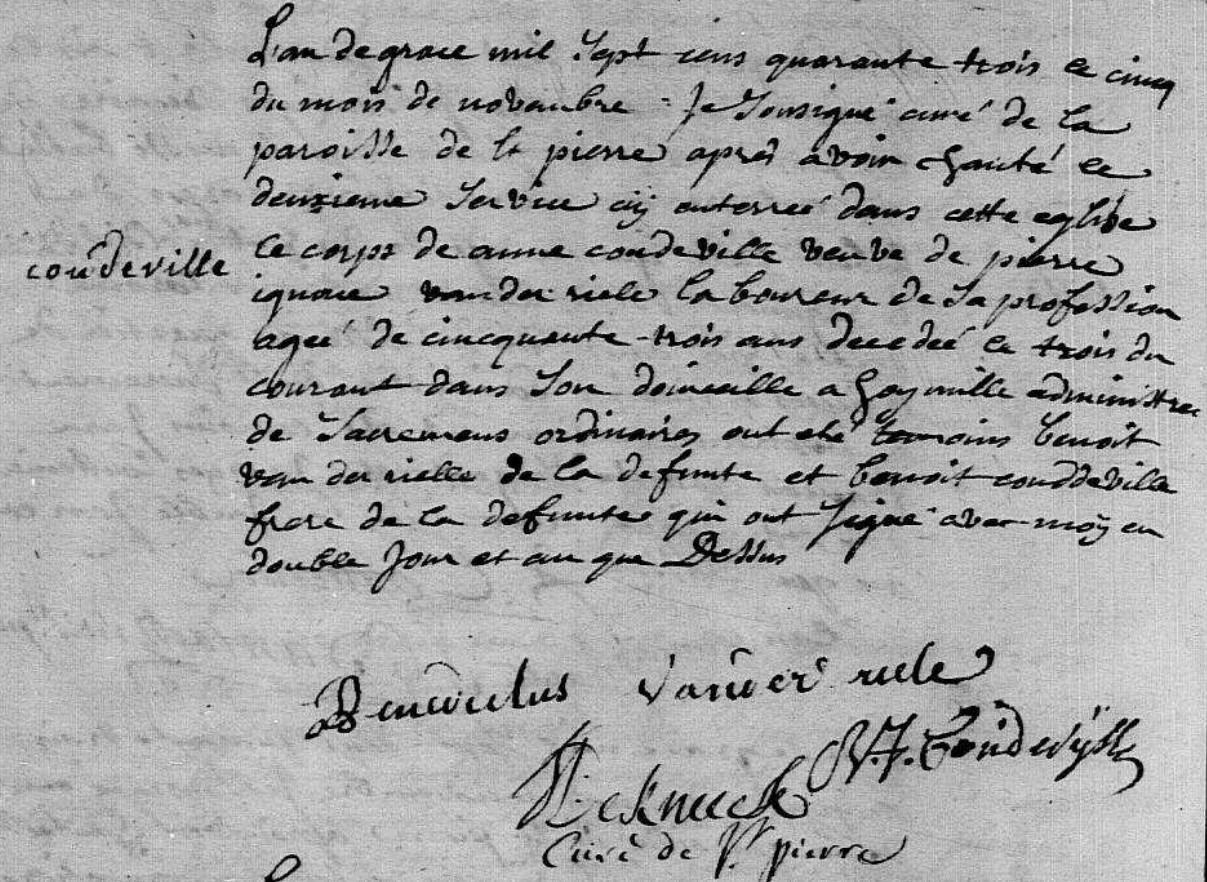 L'an de grace mil sept cens quarante trois le cinq
du mois de novembre Je sousigné curé de la
paroisse de St pierre aprés avoir chanté le
deuxieme service aij enterreé dans cette eglise
coudeville
le corps de anne coudeville veuve de pierre
ignace vander riele laboureur de sa profession
ageé de cincquante-trois ans decedeé le trois du
courant dans son domicille a hoymille administreé
de sacremens ordinaires ont eté temoins benoit
van der rielle de la defunte et benoit couddeville
frere de la defunte qui ont signé avec moÿ en
double Jour et an que Dessus
Benedictus vander riele
Coudevÿlle
curé de St pierre